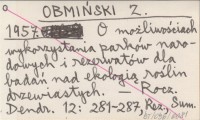 OBMIŃSKI Z.
1957 O możliwościach
wykorzystania parków naro-
dowych i rezerwatów dla
badań nad ekologią roślin
drzewiastych. — Rocz.
Dendr. 12: 281-287, Rez., Sum.